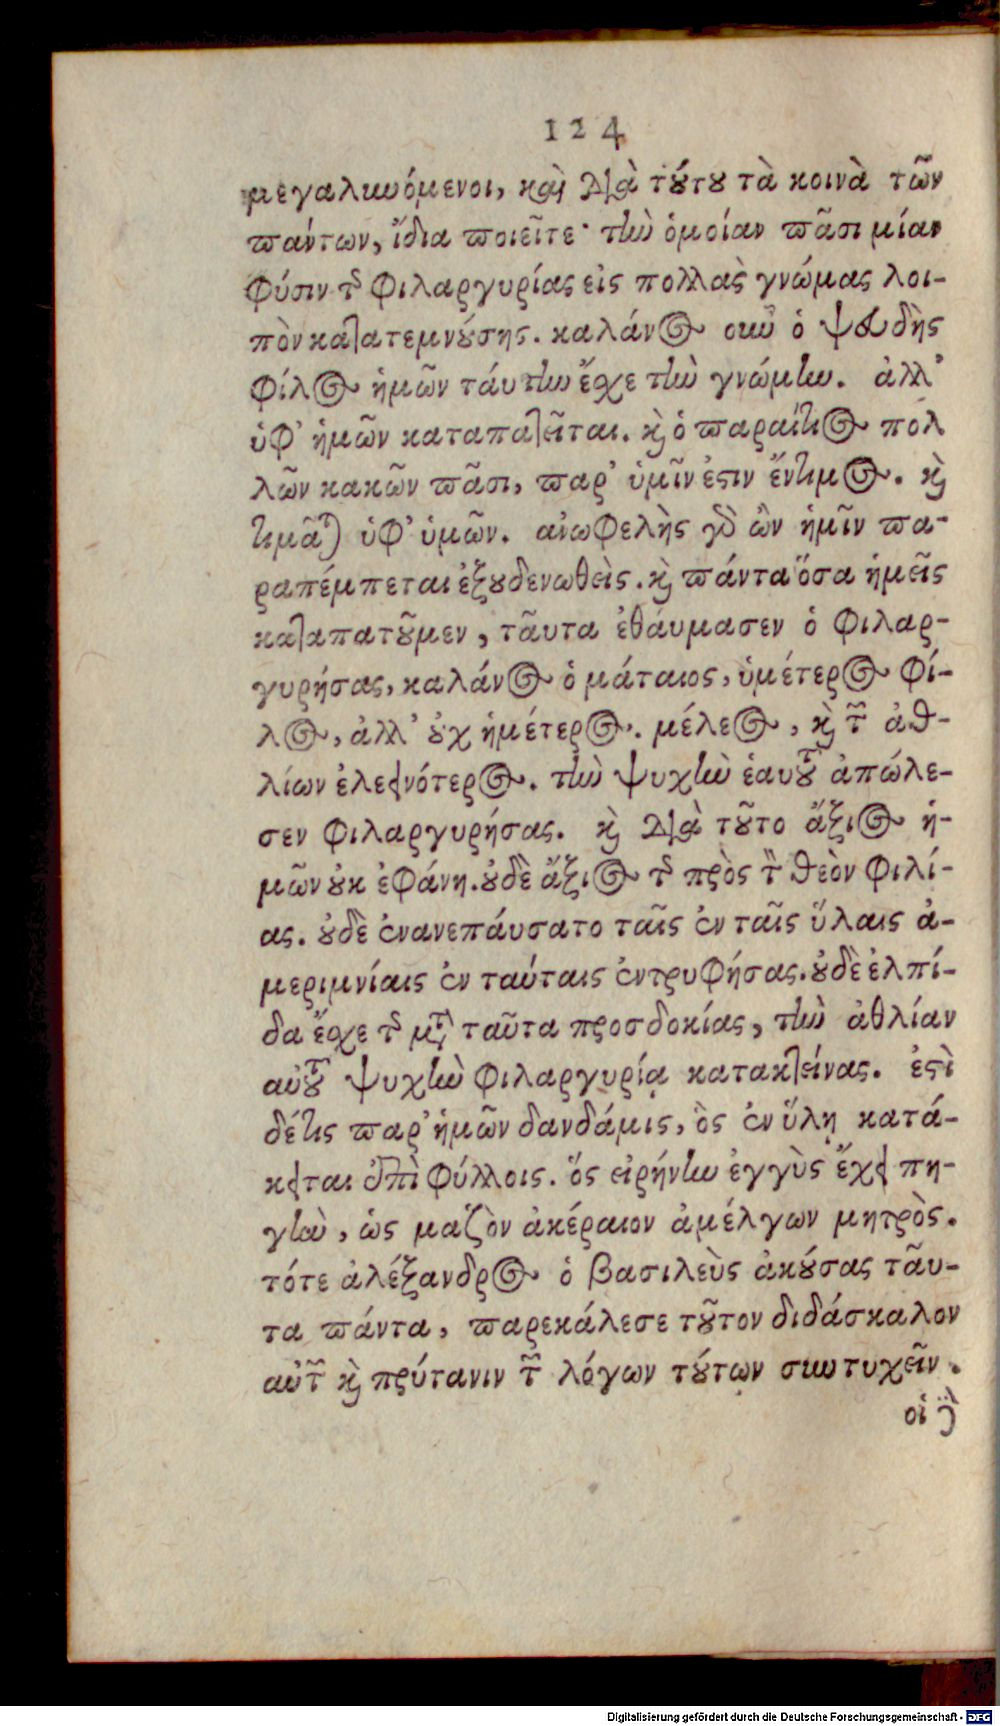 124
μεγαλυνόμενοι, καὶ διὰ τούτου τὰ κοινὰ τῶν
πάντων, ἴδια ποιεῖτε· τὴν ὁμοίαν πᾶσι μίαν
φύσιν τῆς φιλαργυρίας εἰς πολλὰς γνώμας λοι-
πὸν κατατεμνούσης. καλάνος οὖν ὁ ψευδὴς
φίλος ἡμῶν τάυτην ἔχε τὴν γνώμην. ἀλλ'
ὑφ' ἡμῶν καταπατεῖται. καὶ ὁ παραίτιος πολ
λῶν κακῶν πᾶσι, παρ' ὑμῖν ἐστιν ἔντιμος. καὶ
τιμᾶται ὑφ' ὑμῶν. ανωφελὴς γὰρ ὢν ἡμῖν πα-
ραπέμπεται ἐξουδενωθεὶς. καὶ πάντα ὅσα ἡμεῖς
καταπατοῦμεν, τᾶυτα ἐθάυμασεν ὁ φιλαρ-
γυρήσας, καλάνος ὁ μάταιος, ὑμέτερος φί-
λος, ἀλλ' οὐχ ἡμέτερος. μέλεος, καὶ τῶν ἀθ-
λίων ἐλεεινότερος. τὴν ψυχὴν ἑαυτοῦ ἀπώλε-
σεν φιλαργυρήσας. καὶ διὰ τοῦτο ἄξιος ἡ-
μῶν οὐκ ἐφάνη. οὐδὲ ἄξιος τῆς πρὸς τὸν θεὸν φιλί-
ας. οὐδὲ ἐνανεπάυσατο ταῖς ἐν ταῖς ὕλαις ἀ-
μεριμνίαις ἐν ταύταις ἐντρυφήσας. οὐδὲ ἐλπί-
δα ἔχε τῆς μετὰ ταῦτα προσδοκίας, τὴν ἀθλίαν
αὐτοῦ ψυχὴν φιλαργυρίᾳ κατακτείνας. ἐστὶ
δέτις παρ' ἡμῶν δανδάμις, ὃς ἐν ὕλῃ κατά-
κειται ἐπὶ φύλλοις. ὅς εἰρήνην ἐγγὺς ἔχει πη-
γὴν, ὡς μαζὸν ἀκέραιον ἀμέλγων μητρὸς.
τότε ἀλέξανδρος ὁ βασιλεὺς ἀκούσας τᾶυ-
τα πάντα, παρεκάλεσε τοῦτον διδάσκαλον
αὐτῶν καὶ πρύτανιν τῶν λόγων τούτων συντυχεῖν.
οἱ δὲ
Digitalisierung gefördert durch die Deutsche Forschungsgemeinschaft - DFG